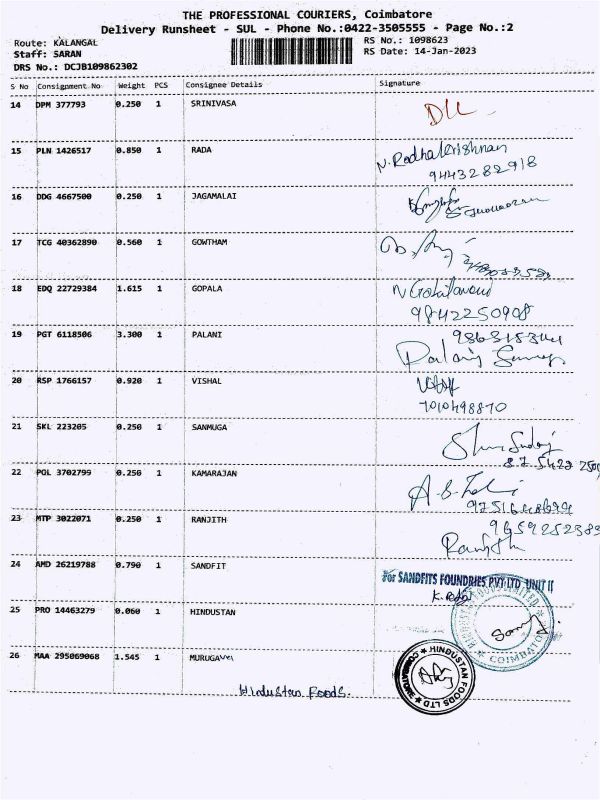 THE PROFESSIONAL COURIERS, Coimbatore
Delivery Runsheet - SUL - Phone No.:0422-3505555 - Page No.:2
Route: KALANGAL
RS No.: 1098623
Staff: SARAN
RS Date: 14-Jan-2023
DRS No.: DCJB109862302
S No Consignment No Weight PCS Consignee Details Signature
14 DPM 377793 0.250 1 SRINIVASA
15 PLN 1426517 0.850 1 RADA N. Radhakrishnan
9443282918
16 DDG 4667500 0.250 1 JAGAMALAI
17 TCG 40362890 0.560 1 GOWTHAM
18 EDQ 22729384 1.615 1 GOPALA
9842250908
19 PGT 6118506 3.300 1 PALANI
Palani
20 RSP 1766157 0.920 1 VISHAL
7010498870
21 SKL 223205 0.250 1 SANMUGA
22 POL 3702799 0.250 1 KAMARAJAN
23 MTP 3022071 0.250 1 RANJITH
9659252389
Ranjith
24 AMD 26219788 0.790 1 SANDFIT
For SANDFITS FOUNDRIES PVT LTD UNIT II
25 PRO 14463279 0.060 1 HINDUSTAN
COIMBATORE
26 MAA 295069068 1.545 1 MURUGAN
HINDUSTAN FOODS LTD
COIMBATORE
Hindustan Foods.